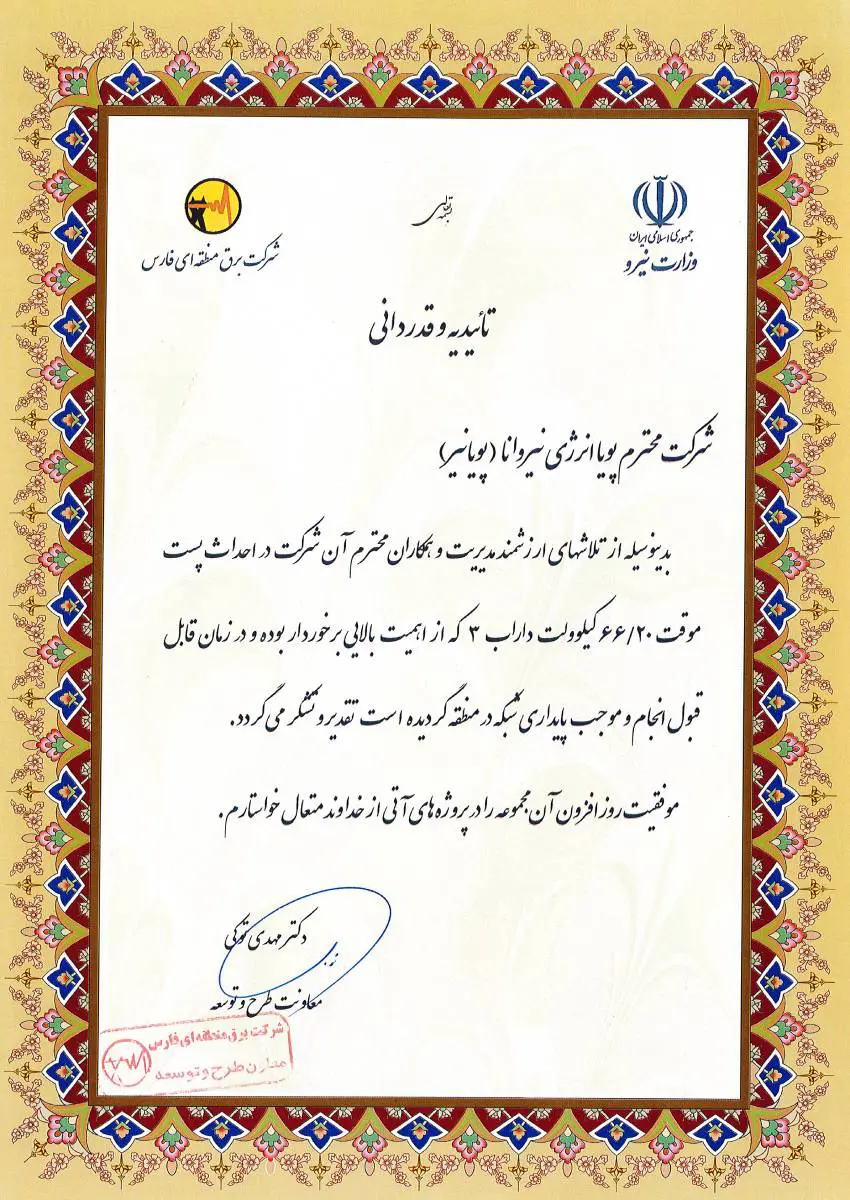 بسمه تعالی
جمهوری اسلامی ایران
وزارت نیرو
شرکت برق منطقه ای فارس
تائیدیه و قدردانی
شرکت محترم پویا انرژی نیروانا (پویانیر)
بدینوسیله از تلاشهای ارزشمند مدیریت و همکاران محترم آن شرکت در احداث پست
موقت ۶۶/۲۰ کیلوولت داراب ۳ که از اهمیت بالایی برخوردار بوده و در زمان قابل
قبول انجام و موجب پایداری شبکه در منطقه گردیده است تقدیر و تشکر می گردد.
موفقیت روز افزون آن مجموعه را در پروژه های آتی از خداوند متعال خواستارم.
دکتر مهدی ترکی
معاونت طرح و توسعه
شرکت برق منطقه ای فارس
معاون طرح و توسعه